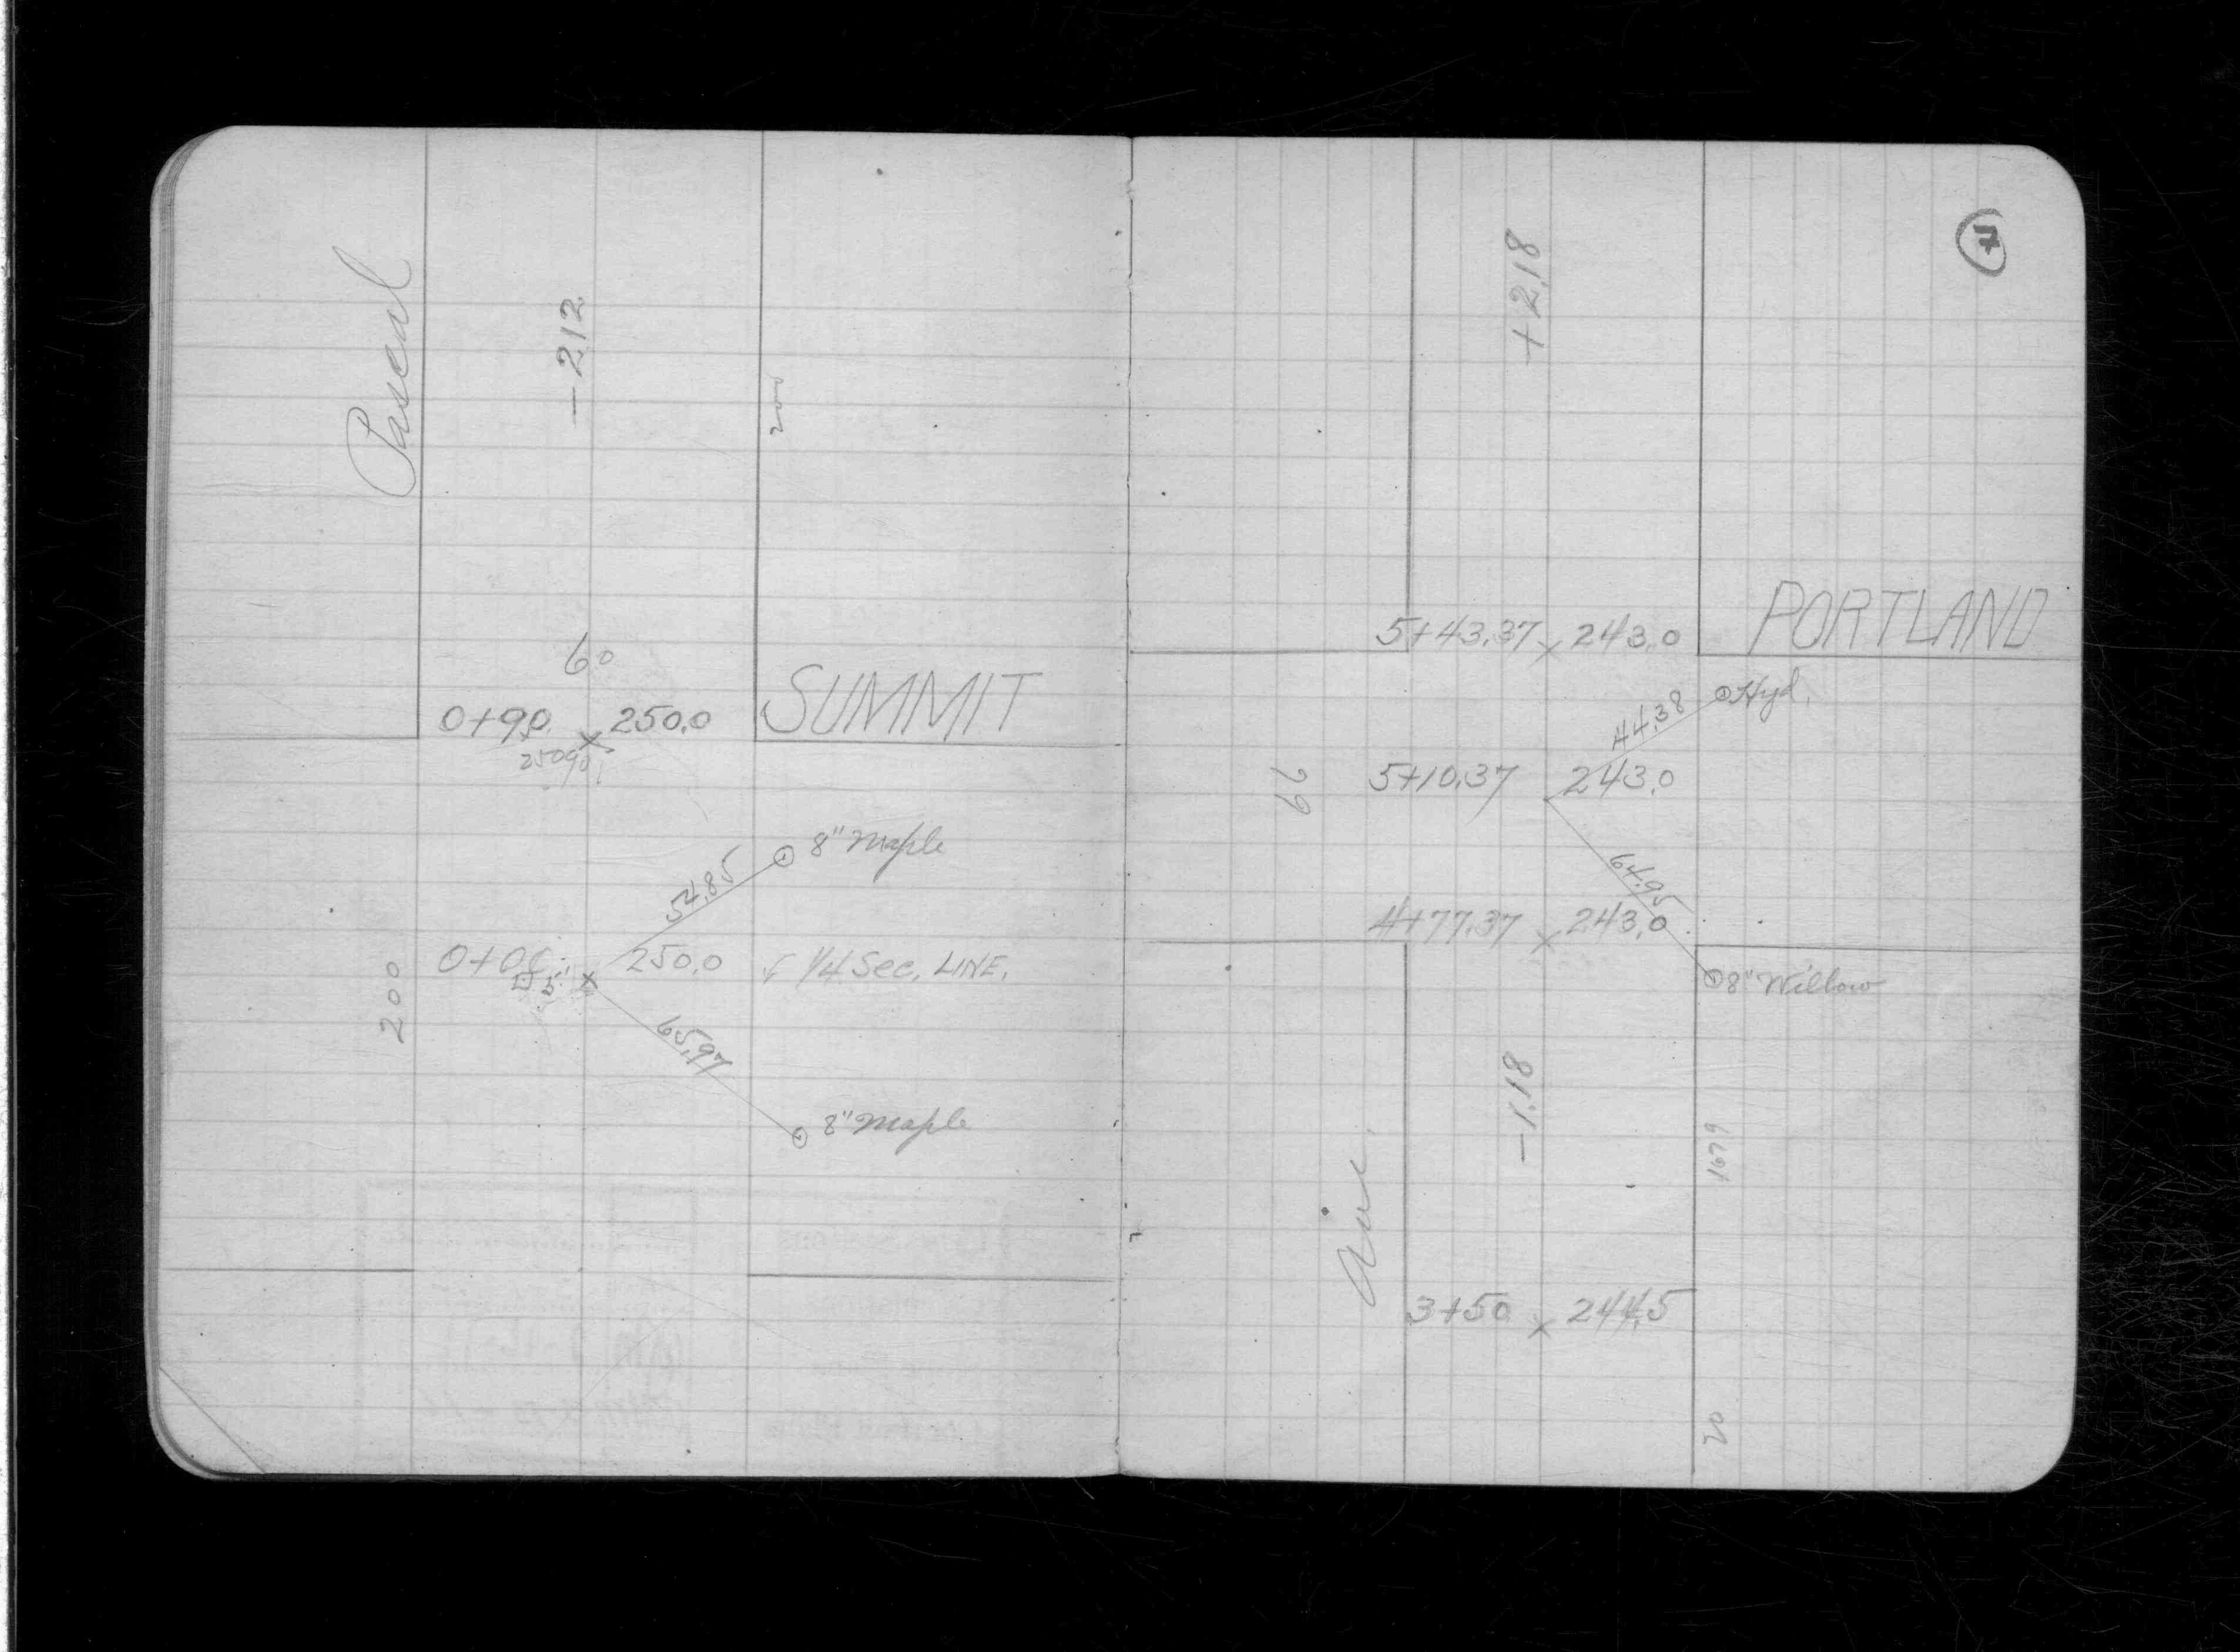 Pascal
-2.12
200
60
0+90 250.0
SUMMIT
25090
54.85
8" Maple
0+00 250.0
1/4 Sec. LINE.
200
65.97
8" Maple
4
+2.18
5+43.37 243.0
PORTLAND
Hyd.
44.38
66
5+10.37 243.0
64.95
4+77.37 243.0
8" Willow
-1.18
1679
Ave.
3+50 244.5
20